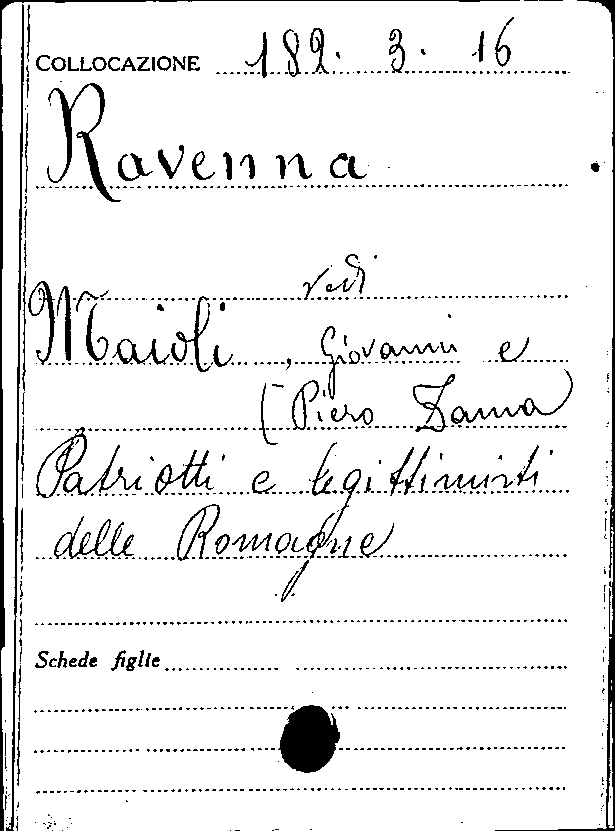 COLLOCAZIONE 182. 3. 16
Ravenna
vedi
Maioli, Giovanni e
(Piero Zama)
Patriotti e legittimisti
delle Romagne
Schede figlie